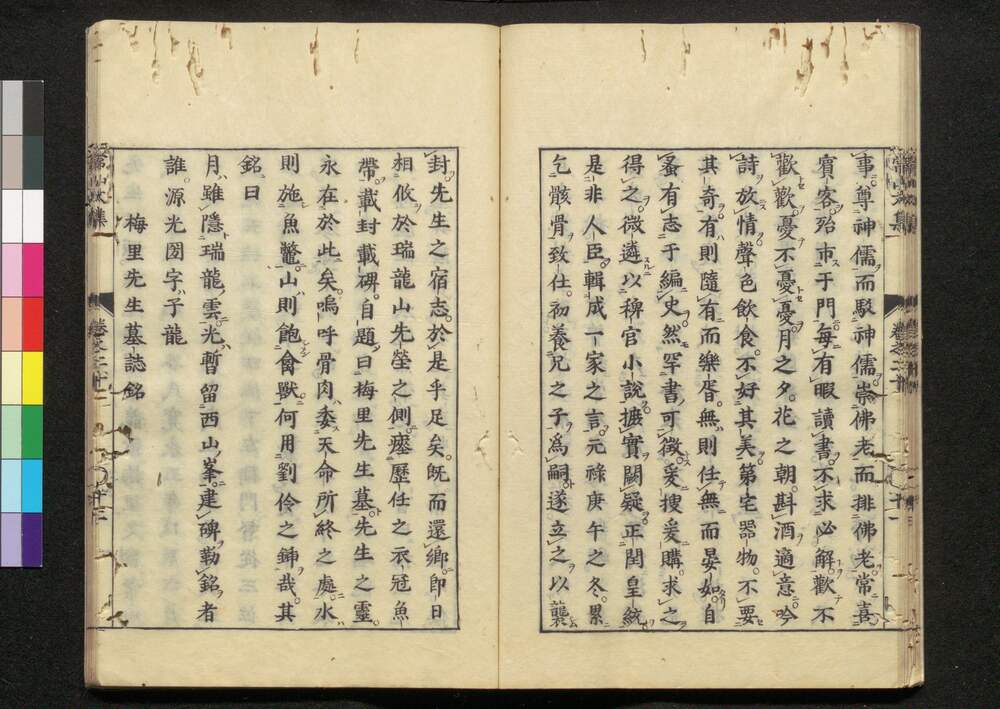 事尊神儒而駁神儒崇佛老而排佛老常喜
賓客殆市于門每有暇讀書不求必解歡不
歡歡憂不憂憂月之夕花之朝斟酒適意吟
詩放情聲色飲食不好其美第宅器物不要
其奇有則隨有而樂胥無則任無而晏如自
蚤有志于編史然罕書可徵爰搜爰購求之
得之微遴以稗官小說摭實闕疑正閏皇統
是非人臣輯成一家之言元祿庚午之冬累
乞骸骨致仕初養兄之子爲嗣遂立之以襲
封先生之宿志於是乎足矣既而還鄉即日
相攸於瑞龍山先塋之側瘞歷任之衣冠魚
帶載封載碑自題曰梅里先生墓先生之靈
永在於此矣嗚呼骨肉委天命所終之處水
則施魚鼈山則飽禽獸何用劉伶之鍤哉其
銘曰
月雖隱瑞龍雲光暫留西山峯建碑勒銘者
誰源光圀字子龍
梅里先生墓誌銘